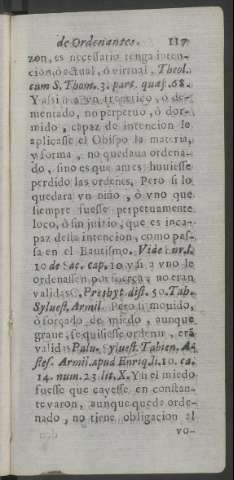 de Ordenantes. 117
zon, es necessario tenga inten-
ciòn, ò actual, ò virtual, Theol.
cum S. Thom. 3. part. quæst. 68.
Y assi si a vn frenetico, ò de-
mentado, no perpetuo, ò dor-
mido, capaz de intencion le
aplicasse el Obispo la materia,
y forma, no quedava ordena-
do, sino es que antes huuiesse
perdido las ordenes. Pero si lo
quedara vn niño, ò vno que
siempre fuesse perpetuamente
loco, ò sin juizio, que es inca-
paz desta intencion, como pas-
sa en el Bautismo. Vide
10 de Sac. cap. 10 y si a vno le
ordenassen por fuerça, no eran
validas. Presbyt. dist. 50. Tab.
Syluest. Armil. Pero si movido,
ò forçado de miedo, aunque
graue, se quisiesse ordenar, erá
validas Palu. Syluest. Tabien. As-
tes. Armil. apud Enriq. li. 10. ca.
14. num. 23. lit. X. Y si el miedo
fuesse que cayesse en constan-
te varon, aunque quede orde-
nado, no tiene obligacion al
vo-